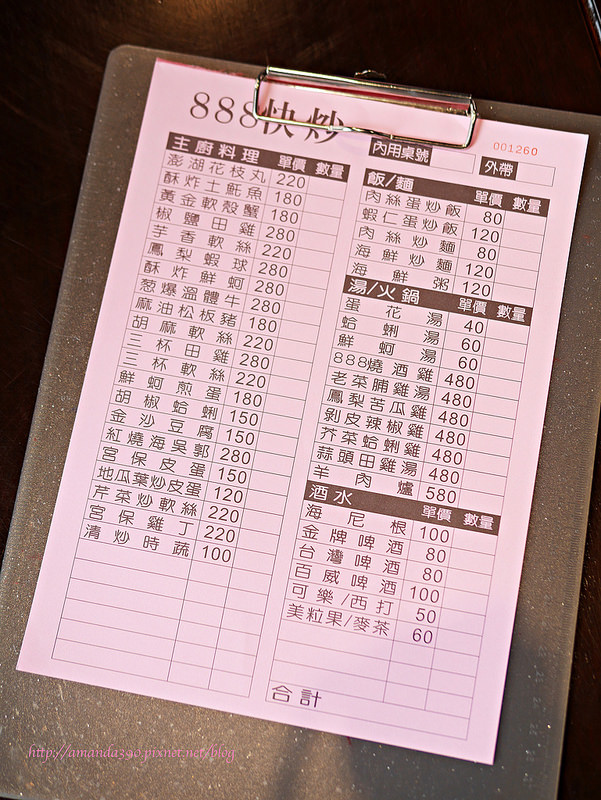 888快炒
001260
內用桌號
外帶
主廚料理 單價 數量
澎湖花枝丸 220
酥炸土魠魚 180
黃金軟殼蟹 180
椒鹽田雞 280
芋香軟絲 220
鳳梨蝦球 280
酥炸鮮蚵 280
蔥爆溫體牛 280
麻油松板豬 180
胡麻軟絲 220
三杯田雞 280
三杯軟絲 220
鮮蚵煎蛋 180
胡椒蛤蜊 150
金沙豆腐 150
紅燒海吳郭 280
宮保皮蛋 150
地瓜葉炒皮蛋 120
芹菜炒軟絲 220
宮保雞丁 220
清炒時蔬 100
飯/麵 單價 數量
肉絲蛋炒飯 80
蝦仁蛋炒飯 120
肉絲炒麵 80
海鮮炒麵 120
海鮮粥 120
湯/火鍋 單價 數量
蛋花湯 40
蛤蜊湯 60
鮮蚵湯 60
888燒酒雞 480
老菜脯雞湯 480
鳳梨苦瓜雞 480
剝皮辣椒雞 480
芥菜蛤蜊雞 480
蒜頭田雞湯 480
羊肉爐 580
酒水 單價 數量
海尼根 100
金牌啤酒 80
台灣啤酒 80
百威啤酒 100
可樂/西打 50
美粒果/麥茶 60
合計
http://amanda390.pixnet.net/blog